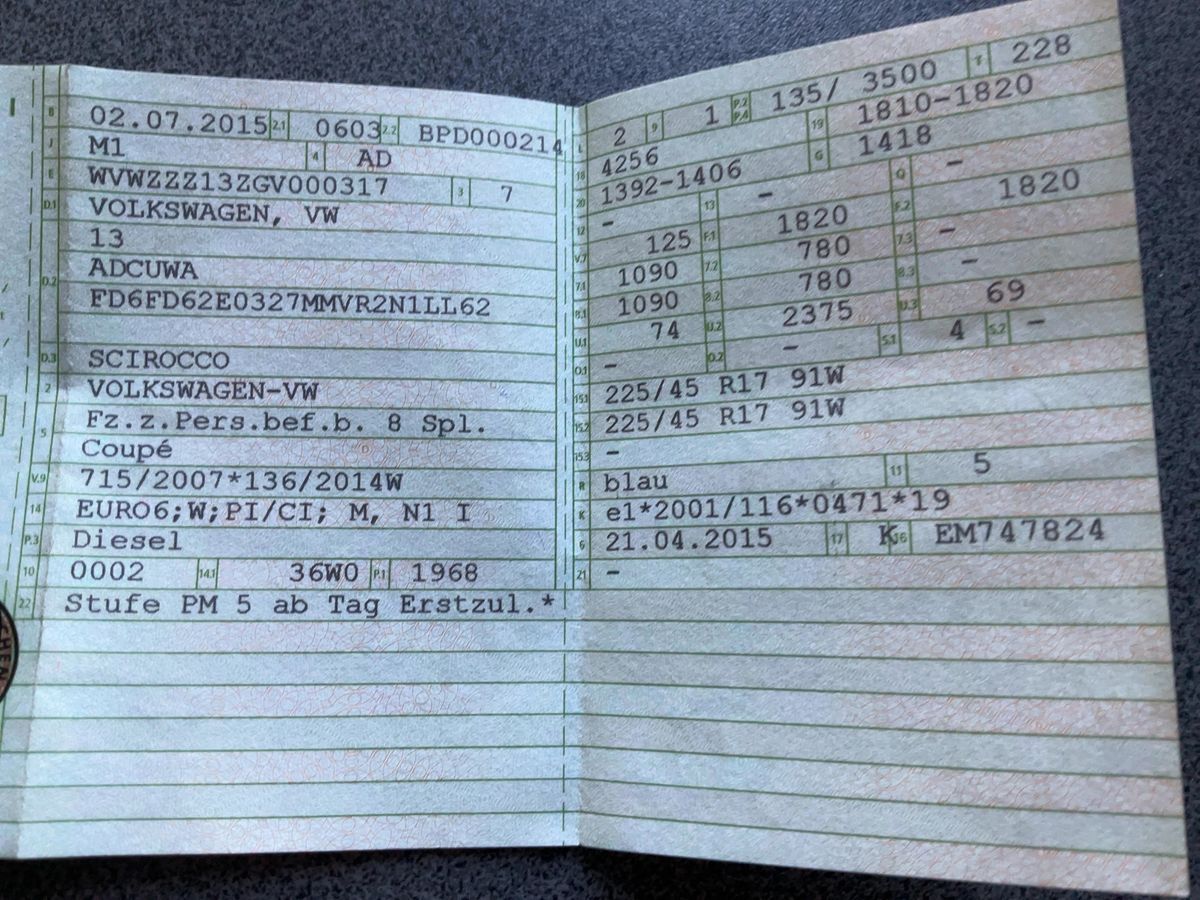 B 02.07.2015 2.1 0603 2.2 BPD000214
J M1 4 AD
E WVWZZZ13ZGV000317 3 7
D.1 VOLKSWAGEN, VW
13
D.2 ADCUWA
FD6FD62E0327MMVR2N1LL62
D.3 SCIROCCO
2 VOLKSWAGEN-VW
5 Fz.z.Pers.bef.b. 8 Spl.
Coupé
V.9 715/2007*136/2014W
14 EURO6;W;PI/CI; M, N1 I
P.3 Diesel
10 0002 14.1 36W0 P.1 1968
22 Stufe PM 5 ab Tag Erstzul.*
L 2 9 1 P.2 P.4 135/ 3500 T 228
18 4256 19 1810-1820
20 1392-1406 G 1418
12 - 13 - Q -
V.7 125 F.1 1820 F.2 1820
7.1 1090 7.2 780 7.3 -
8.1 1090 8.2 780 8.3 -
U.1 74 U.2 2375 U.3 69
O.1 - O.2 - S.1 4 S.2 -
15.1 225/45 R17 91W
15.2 225/45 R17 91W
15.3 -
R blau 11 5
K e1*2001/116*0471*19
6 21.04.2015 17 K 16 EM747824
21 -
CHEN